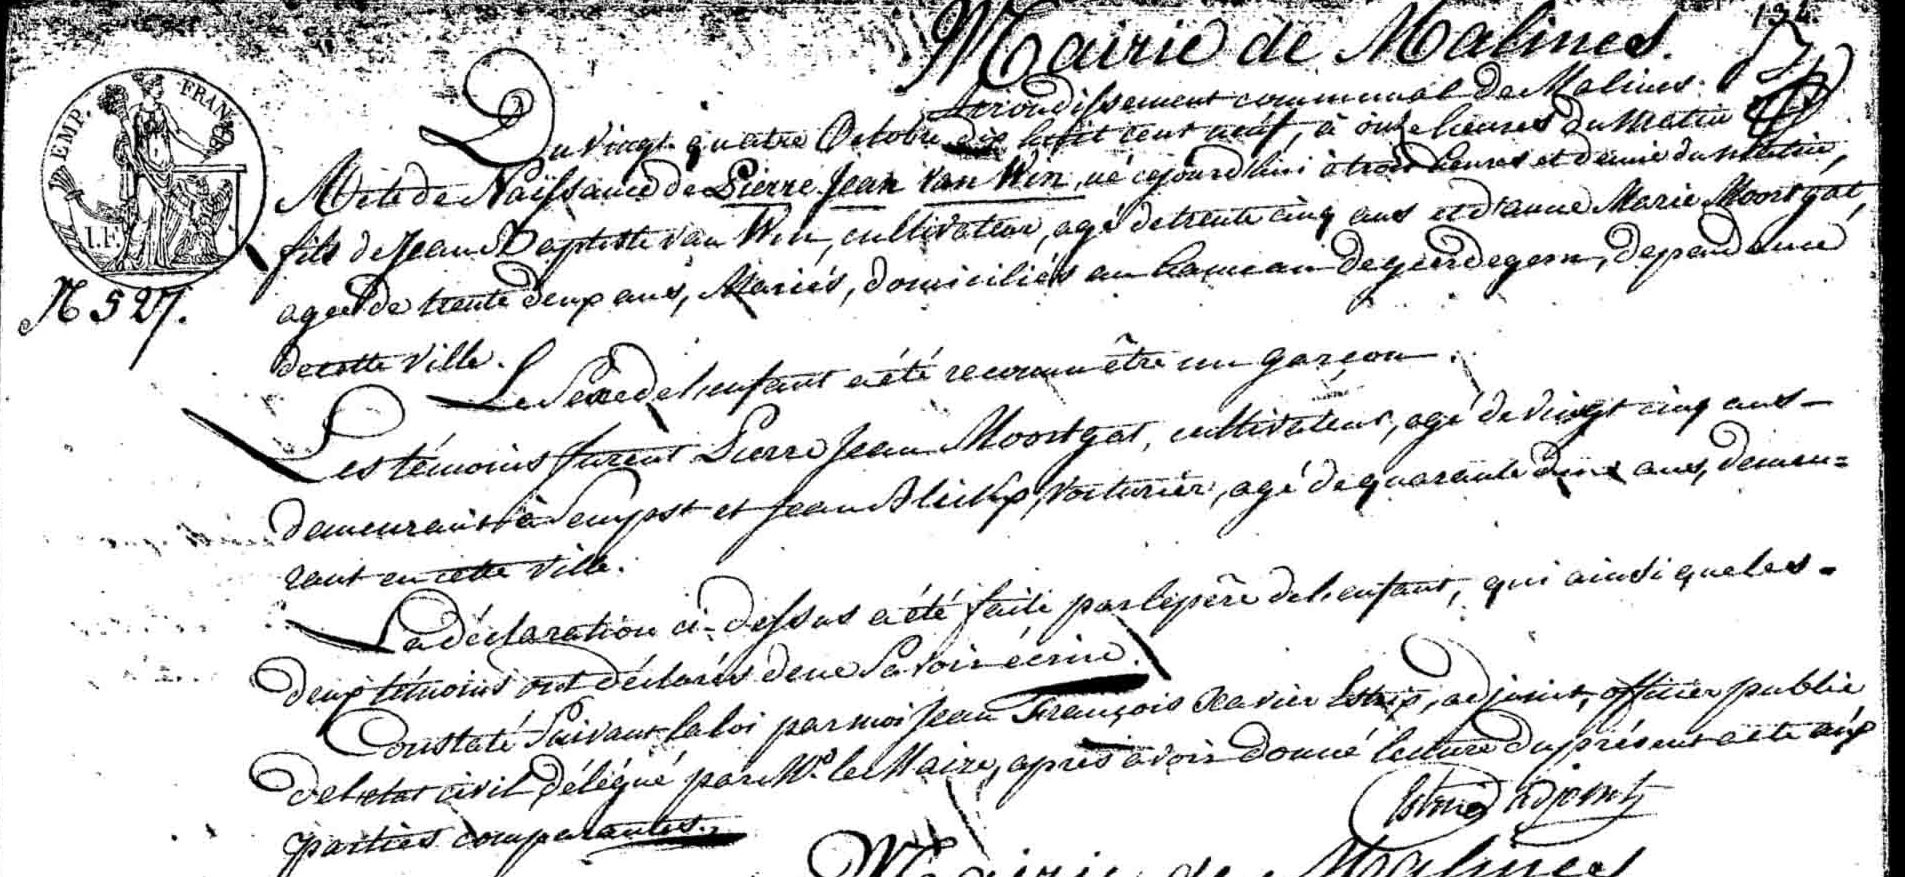 134.
Mairie de Malines.
Arrondissement communal de Malines.
EMP. FRANÇ.
I.F.
Du vingt quatre Octobre dix huit cent neuf, à onze heures du Matin
Acte de Naissance de Pierre Jean Van Win, né cejourd'hui à trois heures et demie du matin,
fils de Jean Baptiste van Win, cultivateur, agé de trente cinq ans et d'anne Marie Moortgat,
N 527.
agée de trente deux ans, Mariés, domiciliés au hameau de geerdegem, dependance
de cette ville.
Le Sexe de l'enfant a été reconnu être un garçon.
Les témoins furent Pierre Jean Moortgat, cultivateur, agé de vingt cinq ans
demeurant à Sempst et Jean Voiturier, agé de quarante ans, demeu=
rant en cette ville.
La déclaration ci-dessus a été faite par le père de l'enfant, qui ainsi que les
deux témoins ont déclarés de ne Savoir écrire.
Constaté Suivant la loi par moi Jean François Xavier Estrix, adjoint, officier public
de l'etat civil délégué par Mr. le Maire, après avoir donné lecture du présent acte aux
parties comparantes.
adjoint
Mairie de Malines